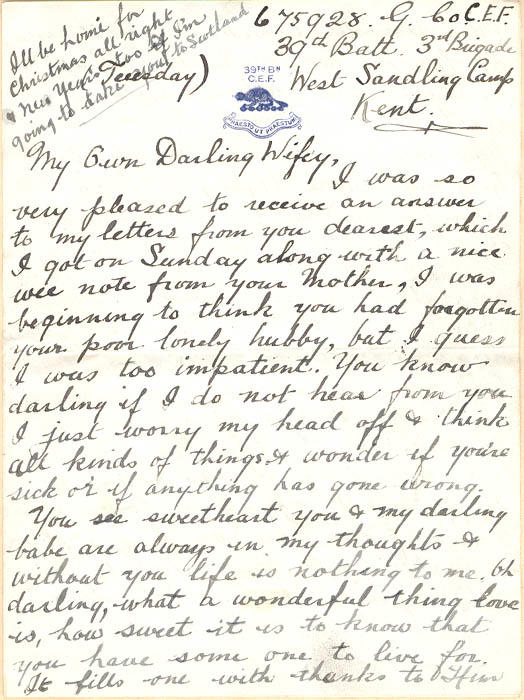 I'll be home for
Christmas all right
& New Year's too if I'm
going to take you to Scotland
675928. G. Co C.E.F.
39th Batt. 3rd Brigade
Tuesday)
West Sandling Camp
Kent.
39TH BN
C.E.F.
PRAESTO UT PRAESTIM
My Own Darling Wifey,
I was so
very pleased to receive an answer
to my letters from you dearest, which
I got on Sunday along with a nice
wee note from your Mother, I was
beginning to think you had forgotten
your poor lonely hubby, but I guess
I was too impatient. You know
darling if I do not hear from you
I just worry my head off & think
all kinds of things & wonder if you're
sick or if anything has gone wrong.
You see sweetheart you & my darling
babe are always in my thoughts &
without you life is nothing to me. Oh
darling, what a wonderful thing love
is, how sweet it is to know that
you have some one to live for.
It fills one with thanks to Him